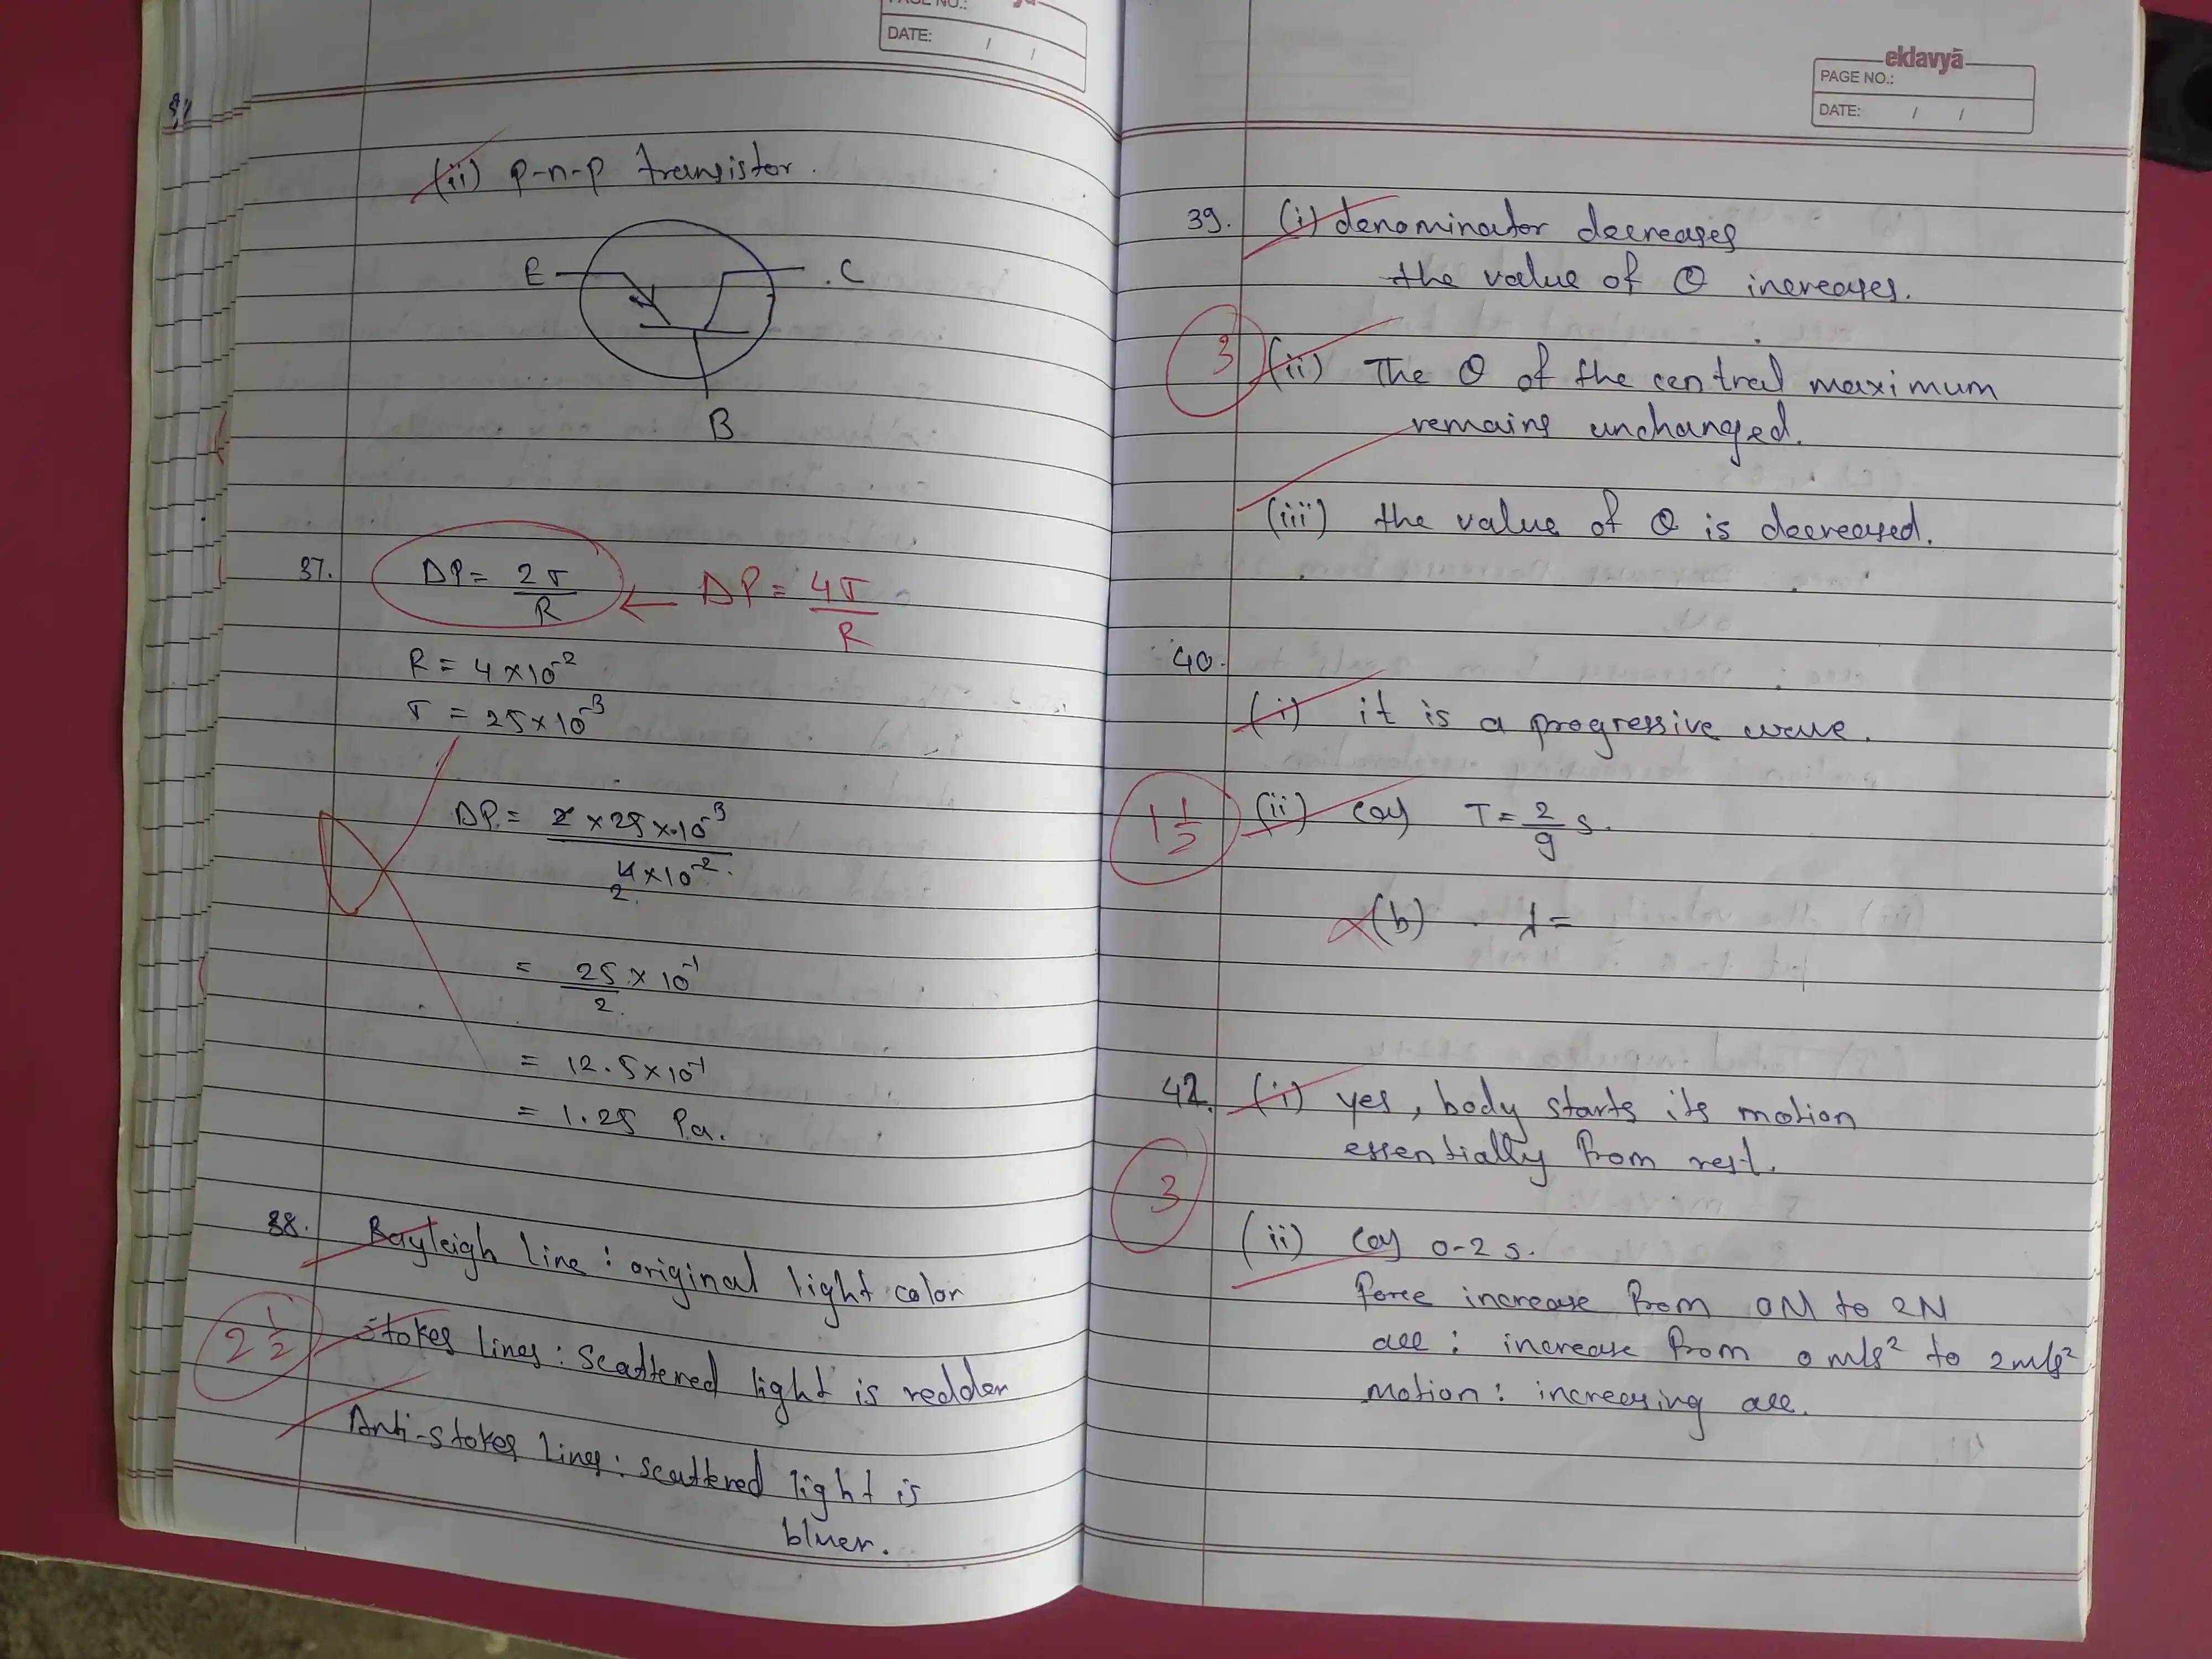 PAGE NO.:
DATE: / /
(ii) p-n-p transistor.
E
.C
B
37. ΔP = 2T/R ← ΔP = 4T/R
R = 4×10⁻²
T = 25×10⁻³
ΔP = 2×25×10⁻³ / 4×10⁻²
2
= 25/2 × 10⁻¹
= 12.5×10⁻¹
= 1.25 Pa.
38. Rayleigh line : original light color
2 1/2
Stokes lines : Scattered light is redder
Anti-stokes lines : scattered light is
bluer.
eklavyā
PAGE NO.:
DATE: / /
39. (i) denominator decreases
the value of θ increases.
3
(ii) The θ of the central maximum
remains unchanged.
(iii) the value of θ is decreased.
40.
(i) it is a progressive wave.
1 1/2
(ii) (a) T = 2/9 s.
(b) λ =
42. (i) yes, body starts its motion
essentially from rest.
3
(ii) (a) 0-2 s.
Force increase from 0N to 2N
acc : increase from 0 m/s² to 2m/s²
Motion : increasing acc.